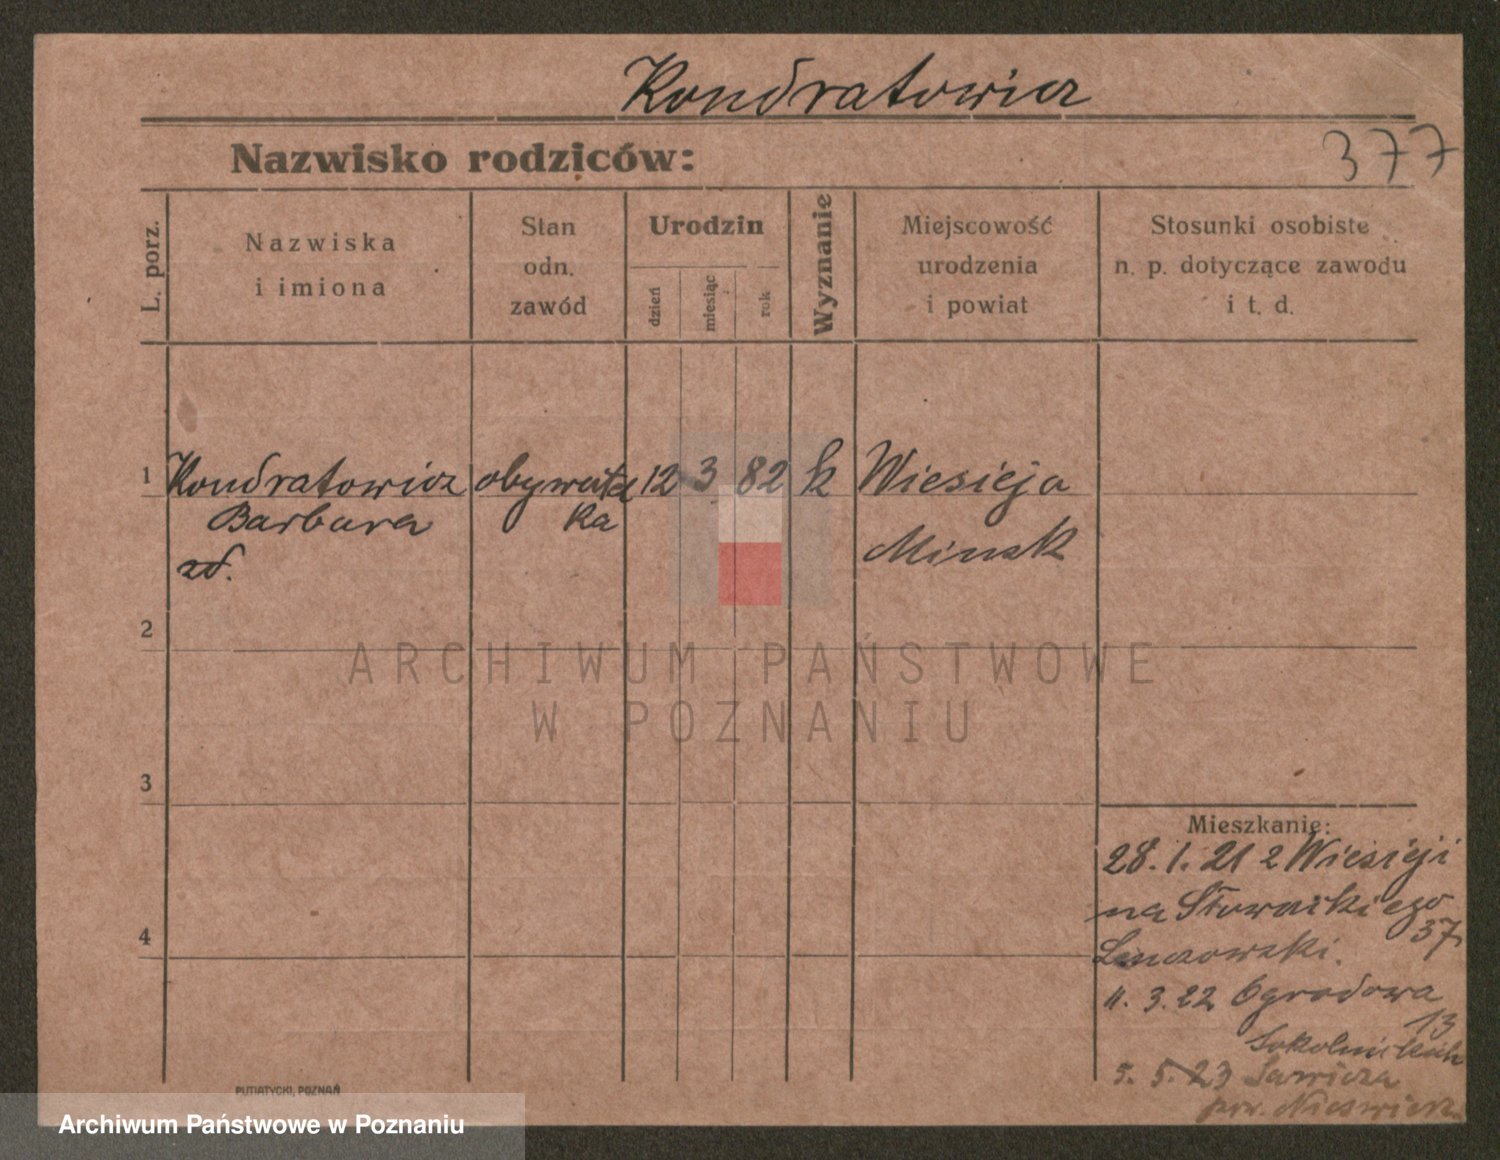 Kondratowicz
Nazwisko rodziców:
377
L. porz.
Nazwiska
i imiona
Stan
odn.
zawód
Urodzin
dzień
miesiąc
rok
Wyznanie
Miejscowość
urodzenia
i powiat
Stosunki osobiste
n. p. dotyczące zawodu
i t. d.
1 Kondratowicz obywatel 12 3 82 k Wiesieja
Barbara ka
Minsk
zd.
2
ARCHIWUM PAŃSTWOWE
W POZNANIU
3
Mieszkanie:
28. 1. 21 z Wiesieji
na Słowackiego
37
4
11. 3. 22 Ogrodowa
13
5. 5. 23
pow. Nieśwież
PUTIATYCKI, POZNAŃ
Archiwum Państwowe w Poznaniu